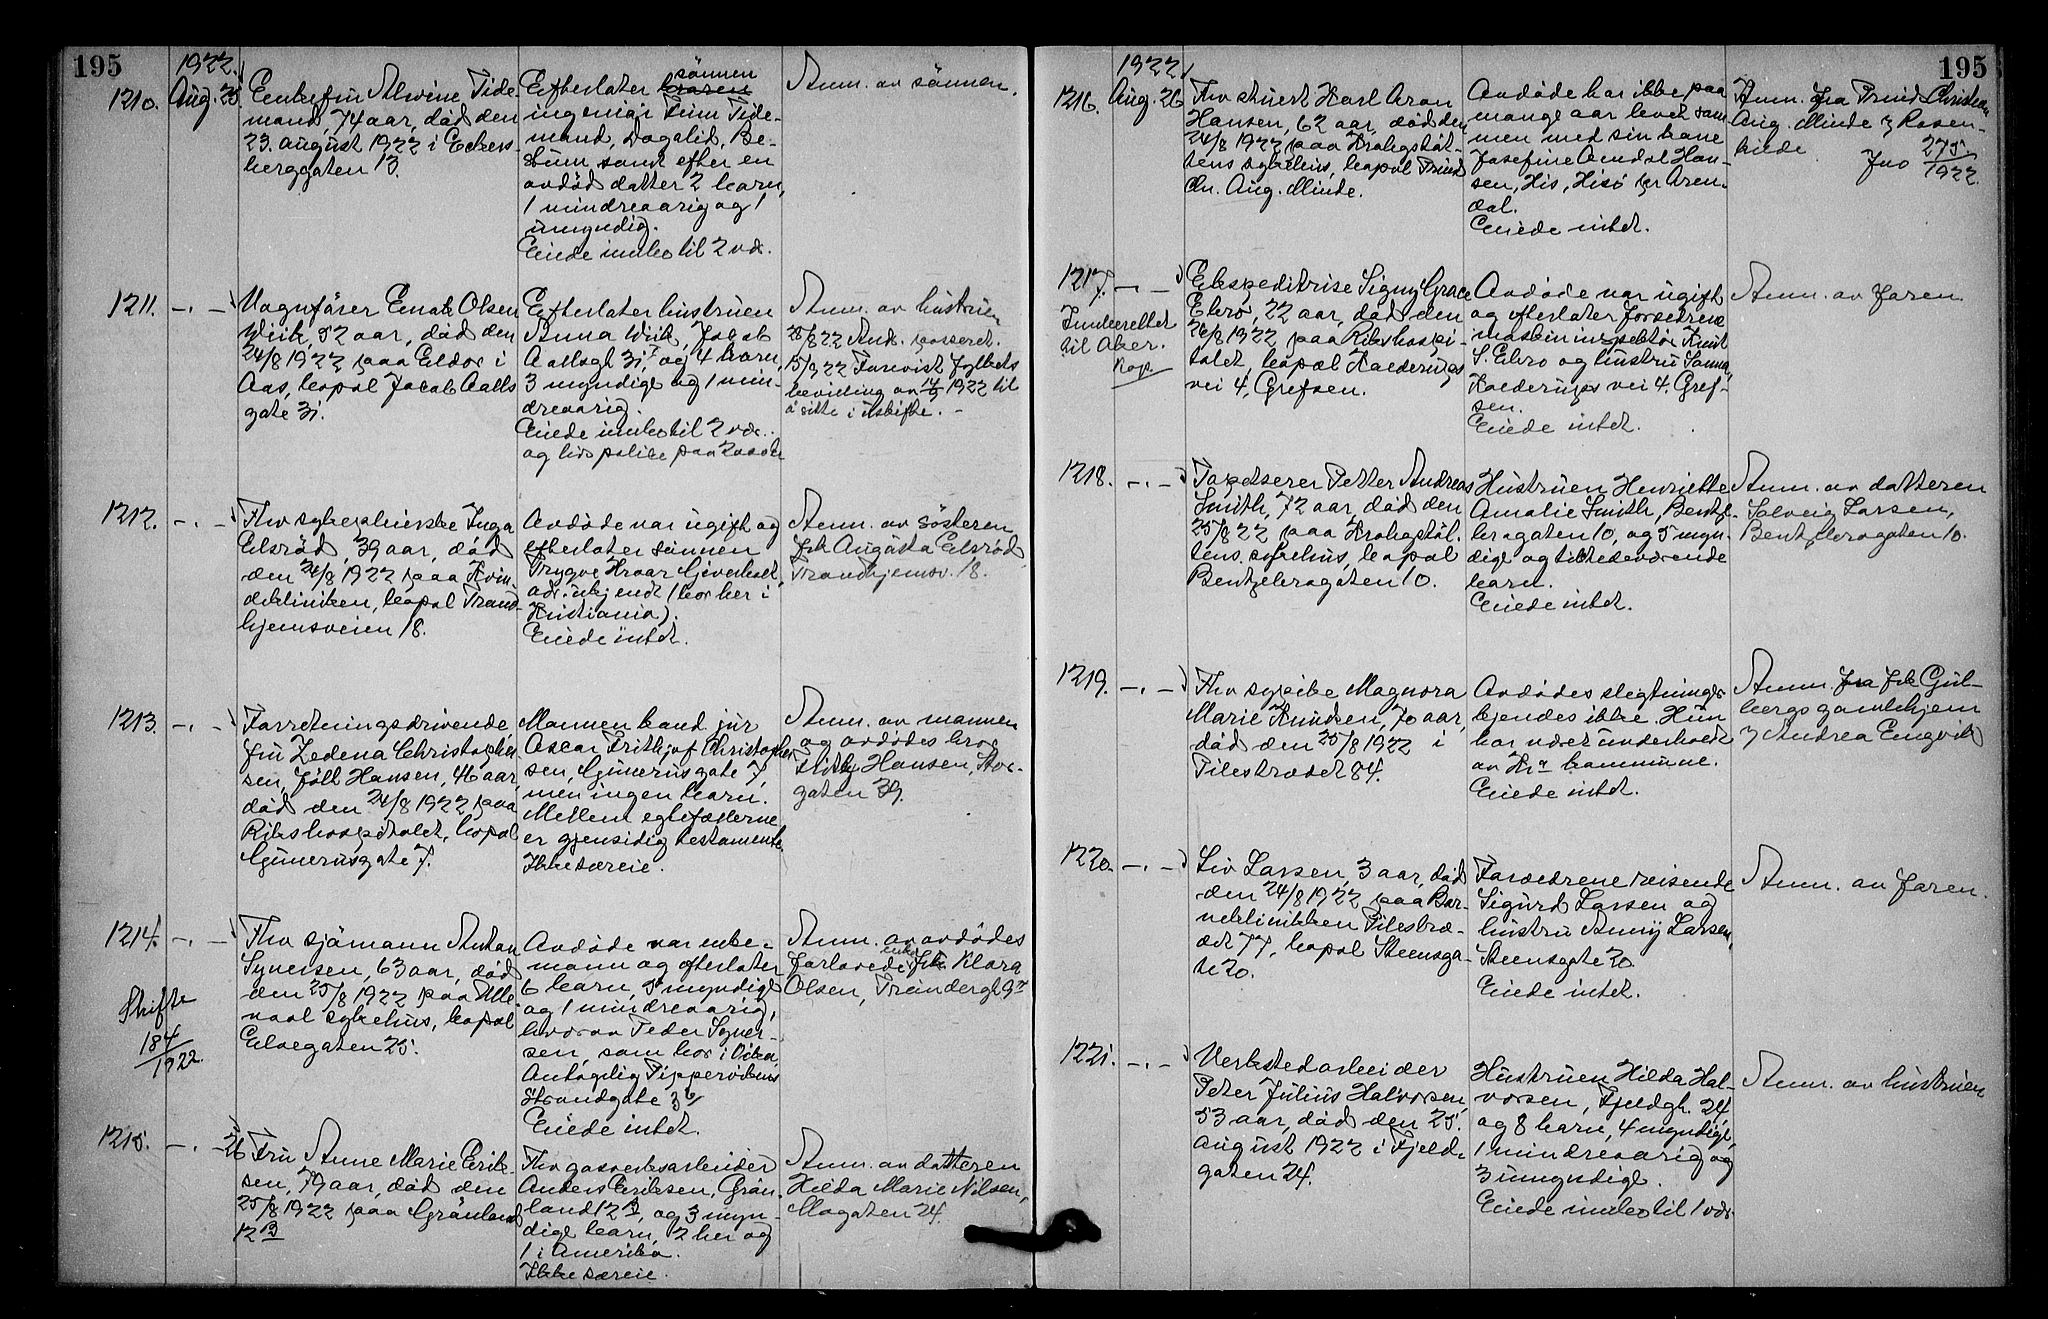 195
1922.
1210. Aug. 25
Enkefru Alvine Tide
mand, 74 aar, död den
23. august 1922 i Eckers-
berggaten 13.
Efterlater sönnen
ingeniör Finn Tide-
mand, Dagalid, Be-
stum, samt efter en
avdöd datter 2 barn,
1 mindreaarig og 1
umyndig.
Eiede indbo til 2 vær.
Anm. av sönnen.
1211. -.-
Vognfører Emil Olsen
Wiik, 52 aar, död den
24/8 1922 paa Eldor i
Aas, bopæl Jacob Aalls
gate 31.
Efterlater hustruen
Anna Wiik, Jacob
Aallsgt 31, og 4 barn,
3 myndige og 1 min-
dreaarig.
Eiede indbo til 2 vær.
og livspolise paa
Anm. av hustruen
28/8 22 And. passeret.
15/9 22 Forevist Fylkets
bevilling av 1922 til
å sitte i uskifte. -
1212. -.-
Fhv sykepleierske Inga
Elsröd, 39 aar, död
den 24/8 1922 paa Kvin-
deklinikken, bopæl Trond-
hjemsveien 18.
Avdöde var ugift og
efterlater sönnen
Trygve Hroar
adr. ukjendt (bor her i
Kristiania).
Eiede intet.
Anm. av søsteren
frk Augusta Elsröd,
Trondhjemsv. 18.
1213. -.-
Forretningsdrivende
fru Zedena Christopher
sen, född Hansen, 46 aar,
död den 24/8 1922 paa
Rikshospitalet, bopæl
Gunerusgate 7.
Mannen kand. jur
Oscar Frithjof Christopher
sen, Gunerusgate 7,
men ingen barn.
Mellem egtefællerne
er gjensidig testamente.
Ikke særeie.
Anm. av mannen
og avdödes bror
Hansen, Stor-
gaten 39.
1214. -.-
Skifte
184/1922.
Fhv sjömann Anton
Syversen, 63 aar, död
den 25/8 1922 paa Ulle-
vaal sykehus, bopæl
Elvegaten 25.
Avdöde var enke-
mann og efterlater
6 barn, 5 myndige
og 1 mindreaarig,
hvorav Peder Syver-
sen, som bor i Viken,
Antagelig Pippervikens
Strandgate 36
Eiede intet.
Anm. av avdödes
forlovede, Klara
Olsen,
1215. -.- 26
Fru Anne Marie Erik-
sen, 79 aar, död den
25/8 1922 paa Grönland
12 B
Fhv gasverksarbeider
Anders Eriksen, Grön-
land 12 B, og 3 myn-
dige barn, 2 her og
1 i Amerika.
Ikke særeie.
Anm. av datteren
Hilda Marie Nilsen,
Mogaten 24.
195
1922.
1216. Aug. 26
Fhv stuert Karl Aron
Hansen, 62 aar, död den
24/8 1922 paa Krohgstöt-
tens sykehus, bopæl Trued
Chr. Aug. Minde.
Avdöde har ikke paa
mange aar levet sam
men med sin kone
Josefine Amdal Han-
sen, His, Hisö pr Aren-
dal.
Eiede intet.
Anm. fra Christian
Aug. Minde
Jno 275/1922.
1217. -.-
Innberettet
til Aker.
Kop.
Ekspeditrise Signy Grace
Ebro, 22 aar, död den
26/8 1922 paa Rikshospi-
talet, bopæl
vei 4, Grefsen.
Avdöde var ugift
og efterlater forældrene
maskininspektör Knut
S. Ebro og hustru Sanna,
vei 4, Gref-
sen.
Eiede intet.
Anm. av faren
1218. -.-
Tapetserer Petter Andreas
Smith, 72 aar, död den
25/8 22 paa Krohgstöt-
tens sykehus, bopæl
Bentsebrogaten 10.
Hustruen Henriette
Amalie Smith, Bentse-
brogaten 10, og 5 myn-
dige og tilstedeværende
barn.
Eiede intet.
Anm. av datteren
Solveig Larsen,
Bentsebrogaten 10.
1219. -.-
Fhv sypike Magnora
Marie Knudsen, 70 aar,
död den 25/8 1922 i
Pilestrædet 84.
Avdödes slegtninger
kjendes ikke. Hun
har været underholdt
av Kra kommune.
Eiede intet.
Anm. fra frk Gul-
bergs gamlehjem
v/ Andrea Engvik
1220. -.-
Liv Larsen, 3 aar, död
den 24/8 1922 paa Bar-
neklinikken Pilestræ-
det 77, bopæl Steensga-
te 20.
Forældrene reisende
Sigurd Larsen og
hustru Anny Larsen,
Steensgate 20
Eiede intet.
Anm. av faren.
1221. -.-
Verkstedarbeider
Peter Julius Halvorsen,
53 aar, död den 25.
august 1922 i Fjeld-
gaten 24.
Hustruen Hilda Hal-
vorsen, Fjeldgt. 24,
og 8 barn, 4 myndige,
1 mindreaarig og
3 umyndige.
Eiede indbo til 1 vær.
Anm. av hustruen